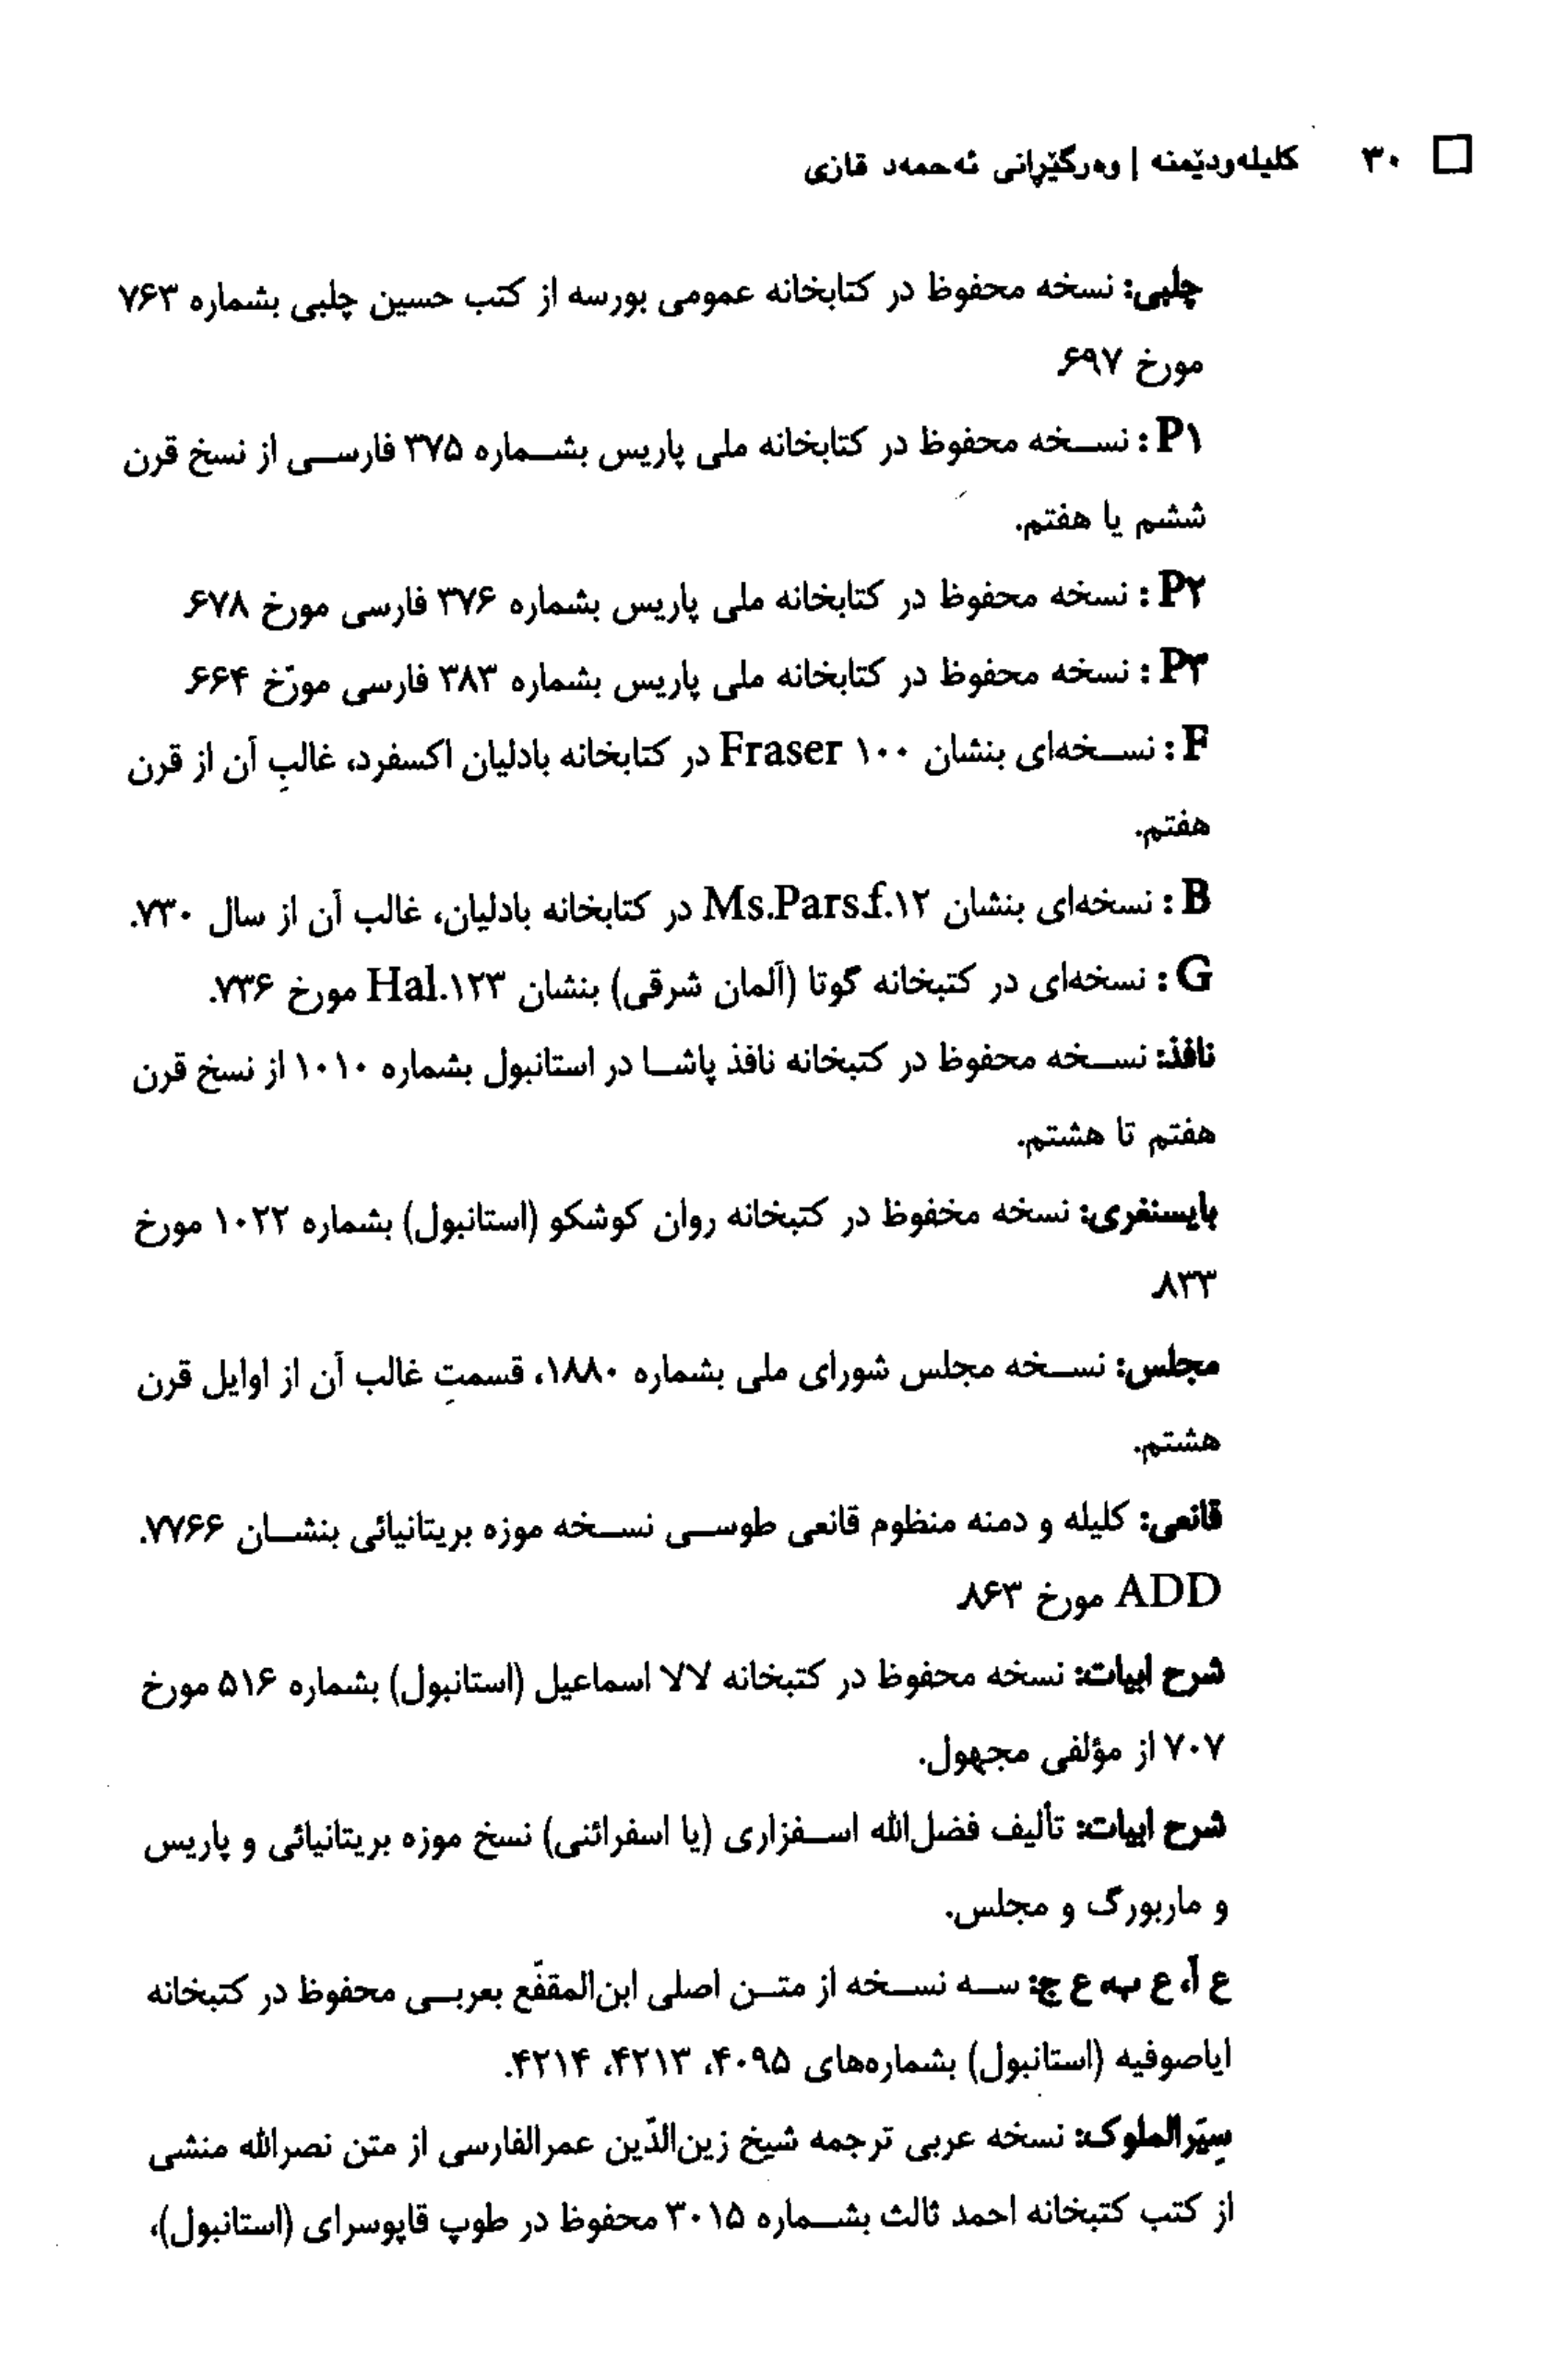 □ ٣٠ کلیله‌ودێمنه | وەرگێڕانی ئەحمەد قازی
چلبی: نسخه محفوظ در کتابخانه عمومی بورسه از کتب حسین چلبی بشماره ۷۶۳
مورخ ۶۹۷
P۱ : نسخه محفوظ در کتابخانه ملی پاریس بشماره ۳۷۵ فارسی از نسخ قرن
ششم یا هفتم.
P۲ : نسخه محفوظ در کتابخانه ملی پاریس بشماره ۳۷۶ فارسی مورخ ۶۷۸
P۳ : نسخه محفوظ در کتابخانه ملی پاریس بشماره ۳۸۳ فارسی مورّخ ۶۶۴
F : نسخه‌ای بنشان Fraser ۱۰۰ در کتابخانه بادلیان اکسفرد، غالبِ آن از قرن
هفتم.
B : نسخه‌ای بنشان Ms.Pars.f.۱۲ در کتابخانه بادلیان، غالب آن از سال ۷۳۰.
G : نسخه‌ای در کتبخانه گوتا (آلمان شرقی) بنشان Hal.۱۲۳ مورخ ۷۳۶.
نافذ: نسخه محفوظ در کتبخانه نافذ پاشا در استانبول بشماره ۱۰۱۰ از نسخ قرن
هفتم تا هشتم.
بایسنغری: نسخه مخفوظ در کتبخانه روان کوشکو (استانبول) بشماره ۱۰۲۲ مورخ
۸۳۳
مجلس: نسخه مجلس شورای ملی بشماره ۱۸۸۰، قسمتِ غالب آن از اوایل قرن
هشتم.
قانعی: کلیله و دمنه منظوم قانعی طوسی نسخه موزه بریتانیائی بنشان ۷۷۶۶.
ADD مورخ ۸۶۳
شرح ابیات: نسخه محفوظ در کتبخانه لالا اسماعیل (استانبول) بشماره ۵۱۶ مورخ
۷۰۷ از مؤلفی مجهول.
شرح ابیات: تألیف فضل‌الله اسفزاری (یا اسفرائنی) نسخ موزه بریتانیائی و پاریس
و ماربورگ و مجلس.
ع آ، ع ب، ع ج: سه نسخه از متن اصلی ابن‌المقفّع بعربی محفوظ در کتبخانه
ایاصوفیه (استانبول) بشماره‌های ۴۰۹۵، ۴۲۱۳، ۴۲۱۴.
سِیَرالملوک: نسخه عربی ترجمه شیخ زین‌الدّین عمرالفارسی از متن نصرالله منشی
از کتب کتبخانه احمد ثالث بشماره ۳۰۱۵ محفوظ در طوپ قاپوسرای (استانبول)،